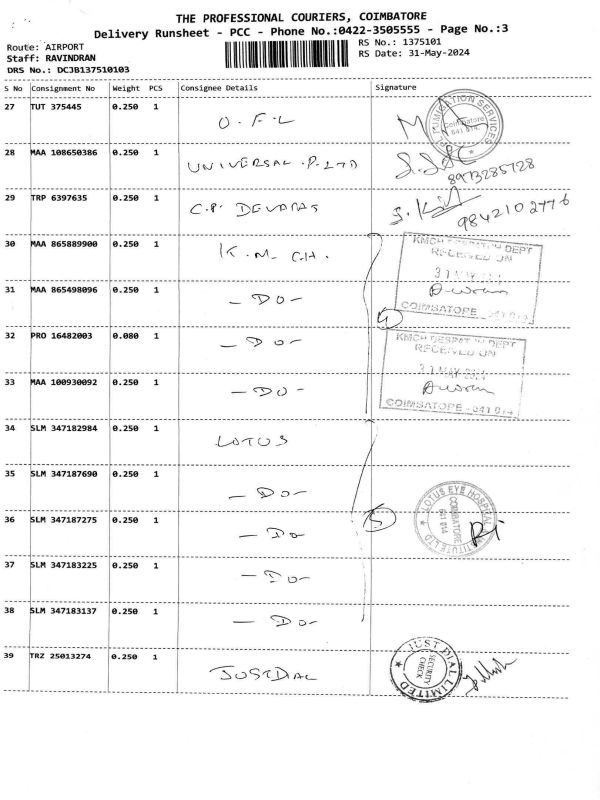 THE PROFESSIONAL COURIERS, COIMBATORE
Delivery Runsheet - PCC - Phone No.:0422-3505555 - Page No.:3
Route: AIRPORT
RS No.: 1375101
Staff: RAVINDRAN
RS Date: 31-May-2024
DRS No.: DCJB137510103
S No Consignment No Weight PCS Consignee Details Signature
27 TUT 375445 0.250 1 O.F.L
28 MAA 108650386 0.250 1 UNIVERSAL P.LTD
8973285728
29 TRP 6397635 0.250 1 C.P. DEVADAS
9842102776
30 MAA 865889900 0.250 1 K.M.C.H.
KMCH DESPATCH DEPT
RECEIVED ON
31 MAY
31 MAA 865498096 0.250 1 -DO-
COIMBATORE - 641 014
4
32 PRO 16482003 0.080 1 -DO-
KMCH DESPATCH DEPT
RECEIVED ON
31 MAY 2024
33 MAA 100930092 0.250 1 -DO-
COIMBATORE - 641 014
34 SLM 347182984 0.250 1 LOTUS
35 SLM 347187690 0.250 1 -DO-
LOTUS EYE HOSPITAL
INSTITUTE LTD
COIMBATORE
641 014
36 SLM 347187275 0.250 1 -DO-
5
37 SLM 347183225 0.250 1 -DO-
38 SLM 347183137 0.250 1 -DO-
39 TRZ 25013274 0.250 1 JUSTDIAL
JUST DIAL LIMITED
SECURITY
CHECK